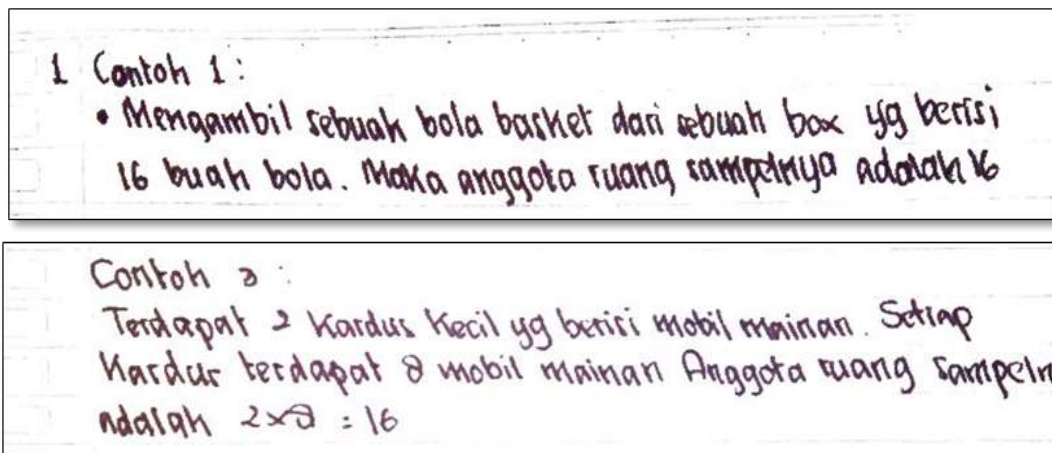 1 Contoh 1 :
• Mengambil sebuah bola basket dari sebuah box yg berisi
16 buah bola. Maka anggota ruang sampelnya adalah 16
Contoh 2 :
Terdapat 2 Kardus Kecil yg berisi mobil mainan. Setiap
Kardus terdapat 8 mobil mainan Anggota ruang sampeln
adalah 2x8 = 16